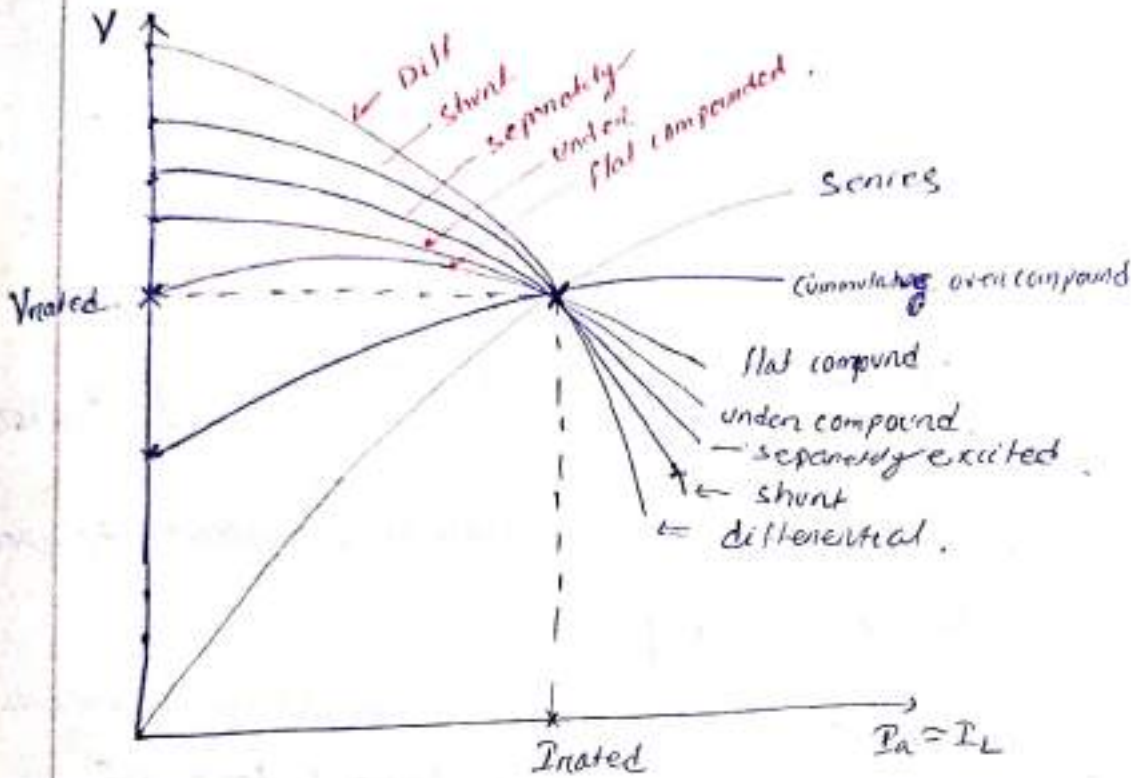 V
Diff
shunt
separately
under
flat compounded.
Series
Vrated.
Cummulative over compound
flat compound
under compound
separately excited
shunt
differential.
Irated
Ia ≃ IL